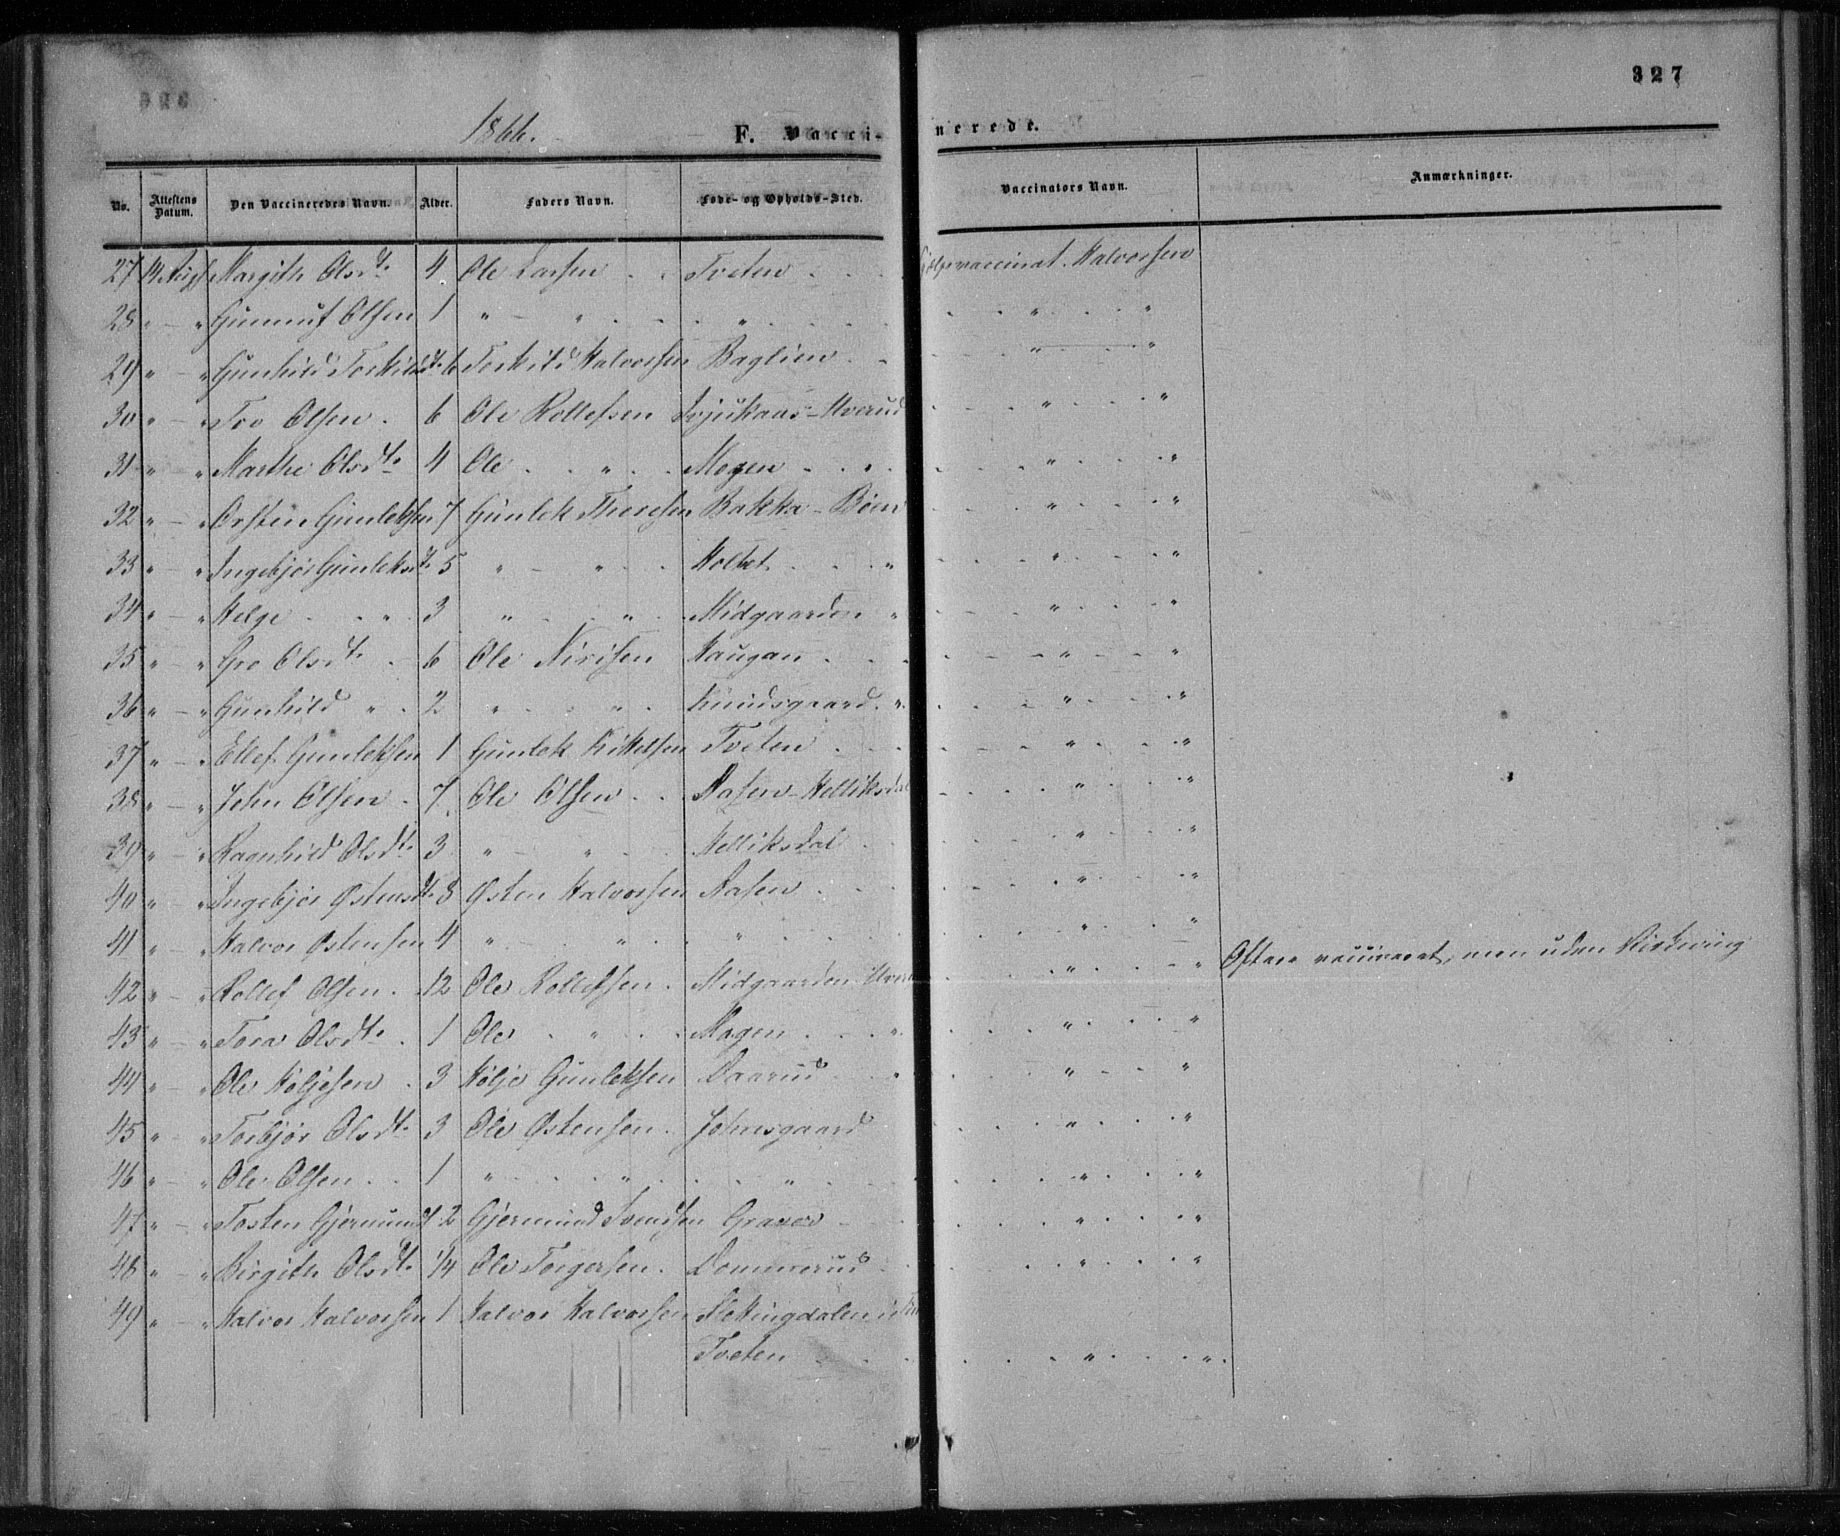 327
1866. F. Vacci- nerede.
No. Attestens Datum. Den Vaccineredes Navn. Alder. Faders Navn. Føde- og Opholds-Sted. Vaccinators Navn. Anmærkninger.
27 14 Aug Margith Olsdt. 4 Ole Larsen Tveten . . Hjelpevaccinat. Halvorsen
28 " - " Gunnuf Olsen 1 " - " . . " . . " . . "
29 " - " Gunhild Torkildsdt. 6 Torkild Halvorsen Baglien . . " "
30 " - " Tov Olsen . 6 Ole Rollefsen - Uverud . . " . . "
31 " - " Marthe Olsdt. 4 Ole . . " . . Mogen . . " . . " . . "
32 " - " Østen Gunleksen 7 Gunlek Thoresen Bakka - Bøen . . " . . "
33 " - " Ingebjør Gunleksdt. 5 " - " . . Holtet . . " . . " . . "
34 " - " Helge . . " 3 " . . " Midgaarden " . . " . . "
35 " - " Gro Olsdt. . 6 Ole Nirisen Haugan . . " - - "
36 " - " Gunhild " . 2 " . . " . Knudsgaard . " . . " . . "
37 " - " Ellef Gunleksen 1 Gunlek Kittelsen Tveten . . " . . "
38 " - " John Olsen . 7 Ole Olsen . . Aasen - Helliksdal . . " . . "
39 " - " Ragnhild Olsdt. 3 " - " . . Helliksdal . . " . . "
40 " - " Ingebjør Østensdt. 8 Østen Halvorsen Aasen . . " . . "
41 " - Halvor Østensen 4 " - . " . . " . . " . . "
42 " - " Rollef Olsen . 12 Ole Rollefsen . Midgaarden . . " . . - " Oftere vaccineret, men uden Virkning
43 " - " Tora Olsdt. . 1 Ole . . " . . Mogen . . " . . " . . "
44 " - " Ole Høljesen . 3 Hølje Gunleksen Daarud . . " . . " - - "
45 " - " Torbjør Olsdt. 3 Ole Østensen . Johnsgaard . . " . . "
46 " - " Ole Olsen . . 1 " - . . " . . " . . " . . "
47 " - " Tosten 2 Gjermund Svendsen Graver - . . " . . "
48 " - " Birgith Olsdt. 14 Ole Torgersen . Dommerud . . " . . "
49 " - " Halvor Halvorsen 1 Halvor Halvorsen
Tveten . . " . . ".